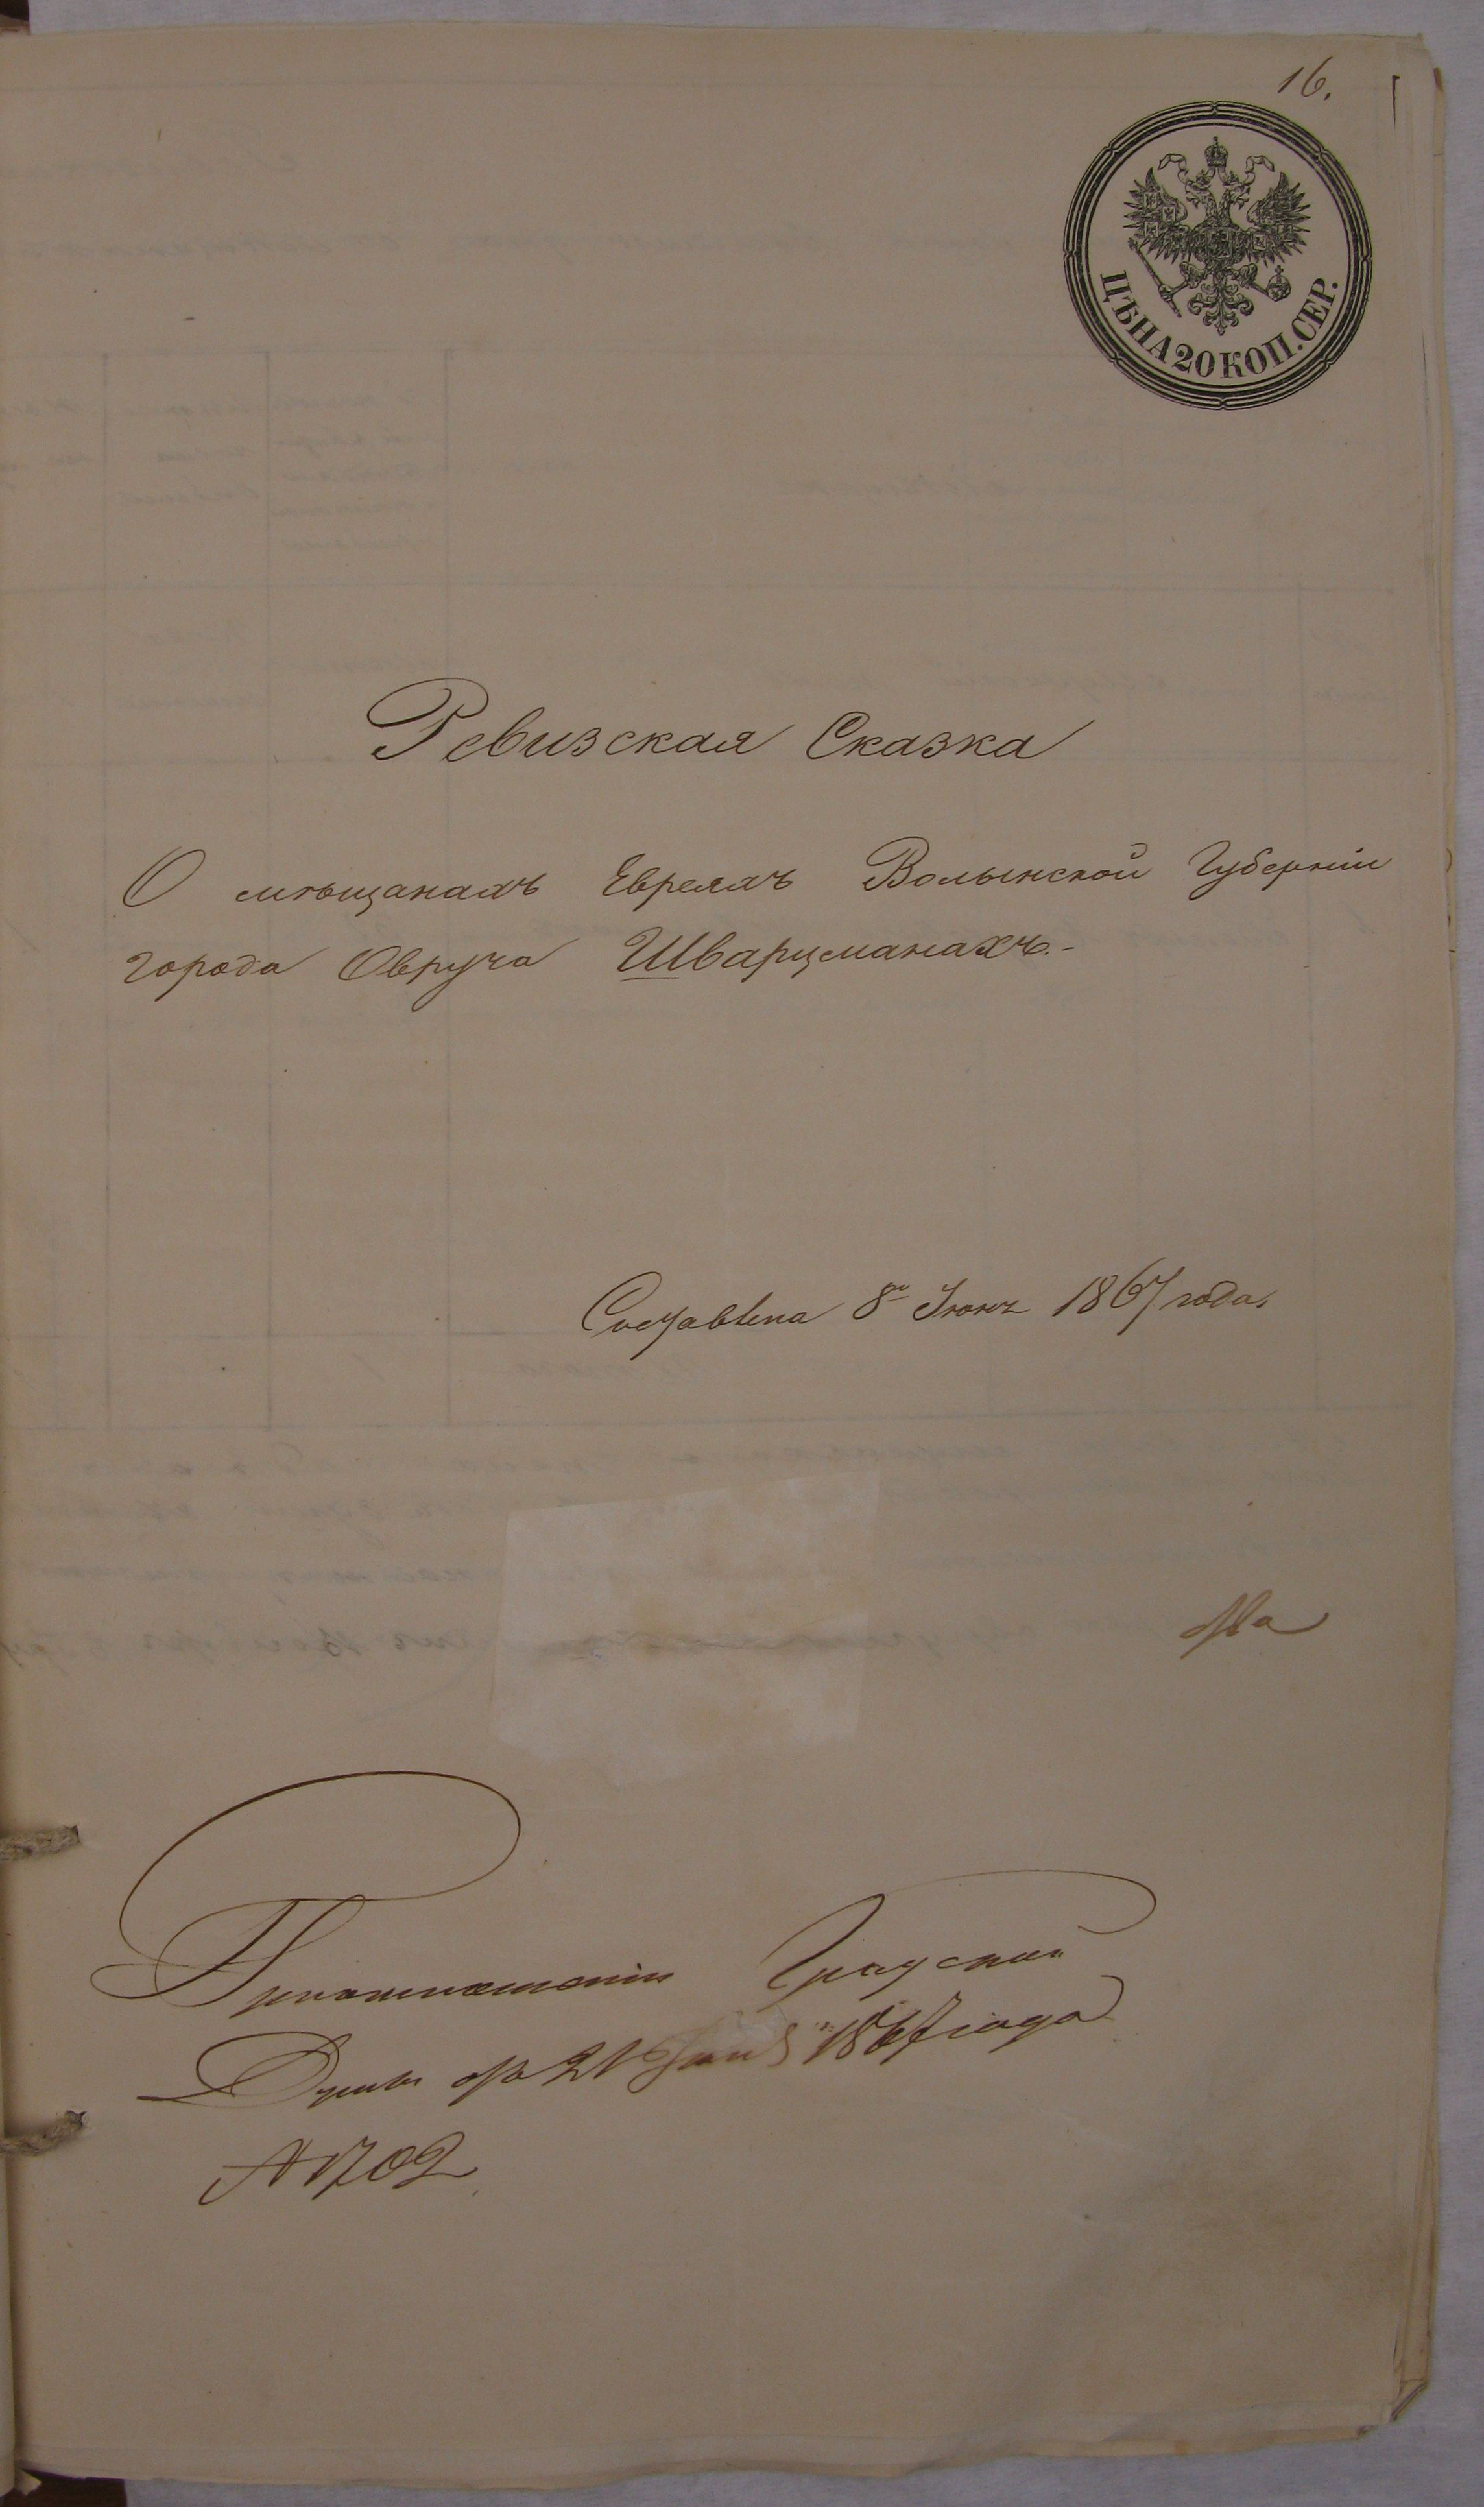 16.
ЦѢНА 20 КОП. СЕР.
Ревизская Сказка
О мѣщанахъ Евреяхъ Волынской Губерніи
города Овруча Шварцманахъ.-
Составлена 8го Іюня 1867 года.
При отношеніи Градской
Думы отъ 21 1867 года
№ 1702